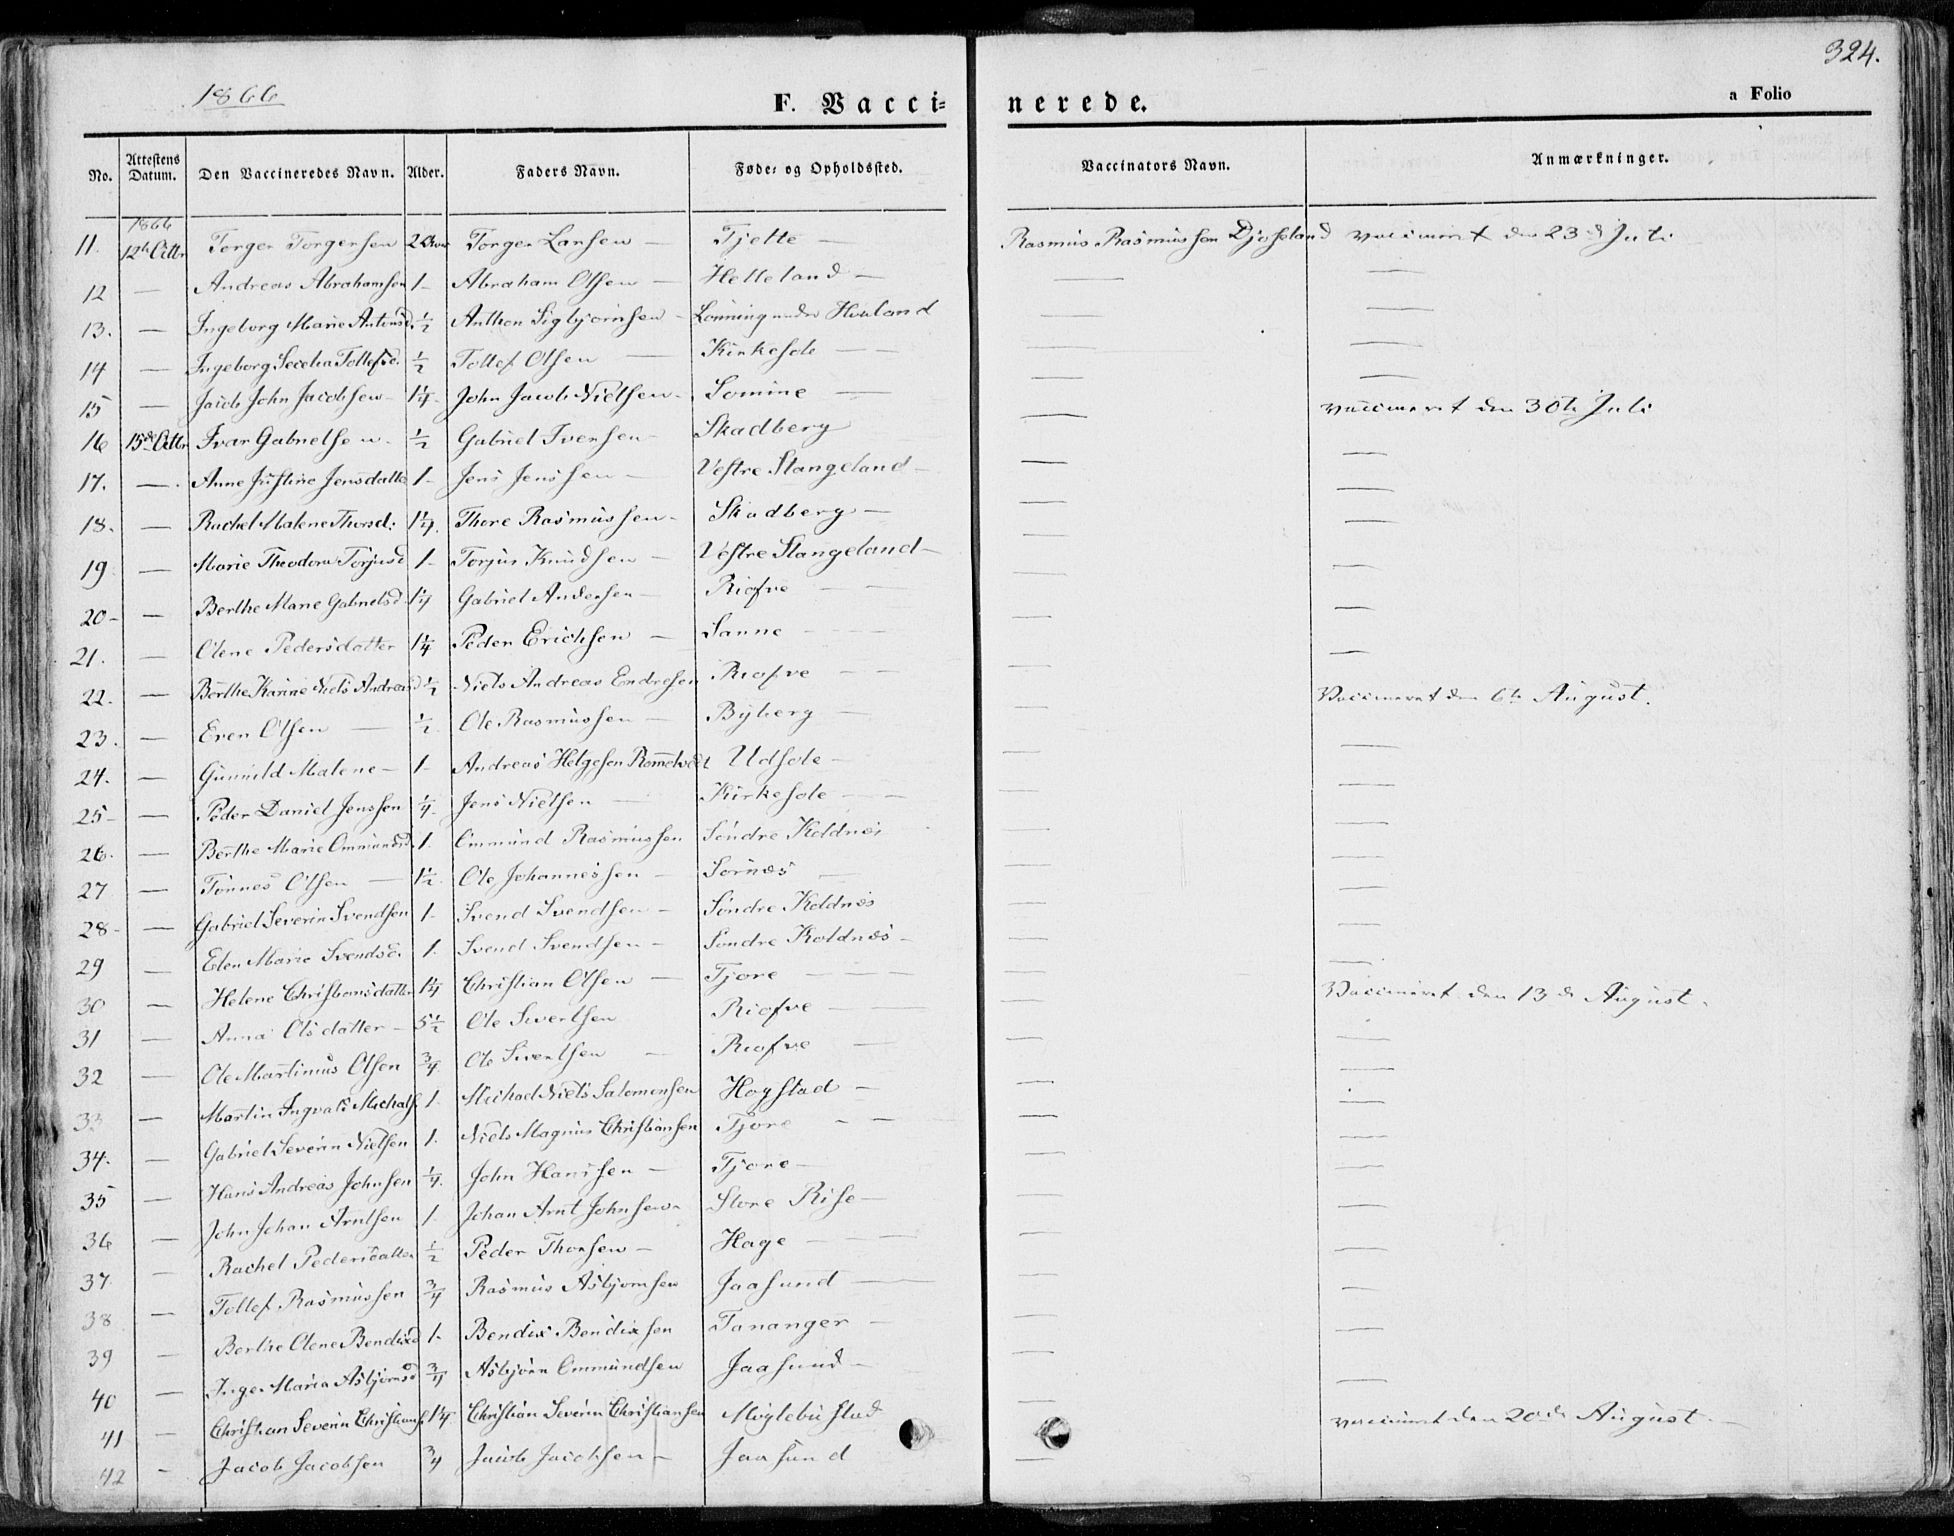 324.
1866
F. Vacci=nerede.
a Folio
No. Attestens Datum. Den Vaccineredes Navn. Alder. Faders Navn. Føde= og Opholdssted. Vaccinators Navn. Anmærkninger.
1866
11. 12te Octbr Torger Torgersen 2 Torger Larsen — Tjelte — Rasmus Rasmussen vaccineret den 23de Juli
12 — Andreas Abrahamsen 1 - Abraham Olsen — Helleland — — —
13. — Ingeborg Marie 1/2 Anthon Sigbjørnsen - Lønning under — —
14 — Ingeborg Secelia Tollefsd. 1/2 Tollef Olsen — Kirkesole — — — —
15 — Jacob John Jacobsen 1 1/4 - John Jacob Nielsen - Somme — — vaccineret den 30te Juli
16 15de Octbr Ivar Gabrielsen. 1/2 Gabriel Iversen - Skadberg — —
17. — Anne Justine Jensdatter 1 - Jens Jenssen — Vestre Stangeland — — —
18. — Rachel Malene Thorsd: 1 1/4. Thore Rasmussen - Skadberg — — —
19 — Marie Theodora Torjusd 1 - Torjus Knudsen — Vestre Stangeland — — —
20 - — Berthe Marie Gabrielsd. 1 1/4 Gabriel Andersen — Risfve — — —
21. — Olene Pedersdatter 1 1/4 Peder Erichsen — Sanne — — —
22. — Berthe Karine Niels Andreasd 1/2 Niels Andreas Endresen Risfve — — Vaccineret den 6te August.
23. — Even Olsen — 1/2. Ole Rasmussen — Byberg — — —
24. — Gunnild Malene — 1 - Andreas Helgesen Udsole — — —
25 - — Peder Daniel Jenssen 1/4 - Jens Nielsen — Kirkesole — — — —
26. — Berthe Marie Ommundsd 1. Ommund Rasmussen Søndre Koldnes — —
27 — Tønnes Olsen — 1 1/2. Ole Johannessen — Sørnes — — —
28 - — Gabriel Severin Svendsen 1 - Svend Svendsen — Søndre Koldnes — —
29 — Elen Marie Svendsd. 1. Svend Svendsen — Søndre Koldnes - — —
30 — Helene Christensdatter 1 1/4 Christian Olsen — Tjore — — — Vaccineret den 13de August.
31 — Anna Olsdatter — 5 1/2 Ole Sivertsen Risfve — — —
32 — Ole Martinius Olsen 3/4. Ole Sivertsen — Risfve — — —
33 — Martin Ingvald 1. Michael Niels Salomonsen Hogstad — — —
34. — Gabriel Severin Nielsen 1. Niels Magnus Christiansen Tjore — — — —
35 — Hans Andreas Johnsen 1/4. John Hanssen — Tjore — — —
36 — John Johan Arntsen 1. Johan Arnt Johnsen - Store Rise — — —
37. — Rachel Pedersdatter 1/2 Peder Thorsen — Hage — — — —
38 — Tollef Rasmussen 3/4 Rasmus Asbjørnsen Jaasund — — —
39 — Berthe Olene Bendixd 1. Bendix Bendixsen Tananger — — —
40 — Inger Maria Asbjørnsd 3/4 Asbjørn Ommundsen Jaasund — — —
41 — Christian Severin Christians. 1 1/4. Christian Severin Christiansen Møglebustad — vaccineret den 20de August. —
42 - Jacob Jacobsen 3/4 Jacob Jacobsen — Jaasund —